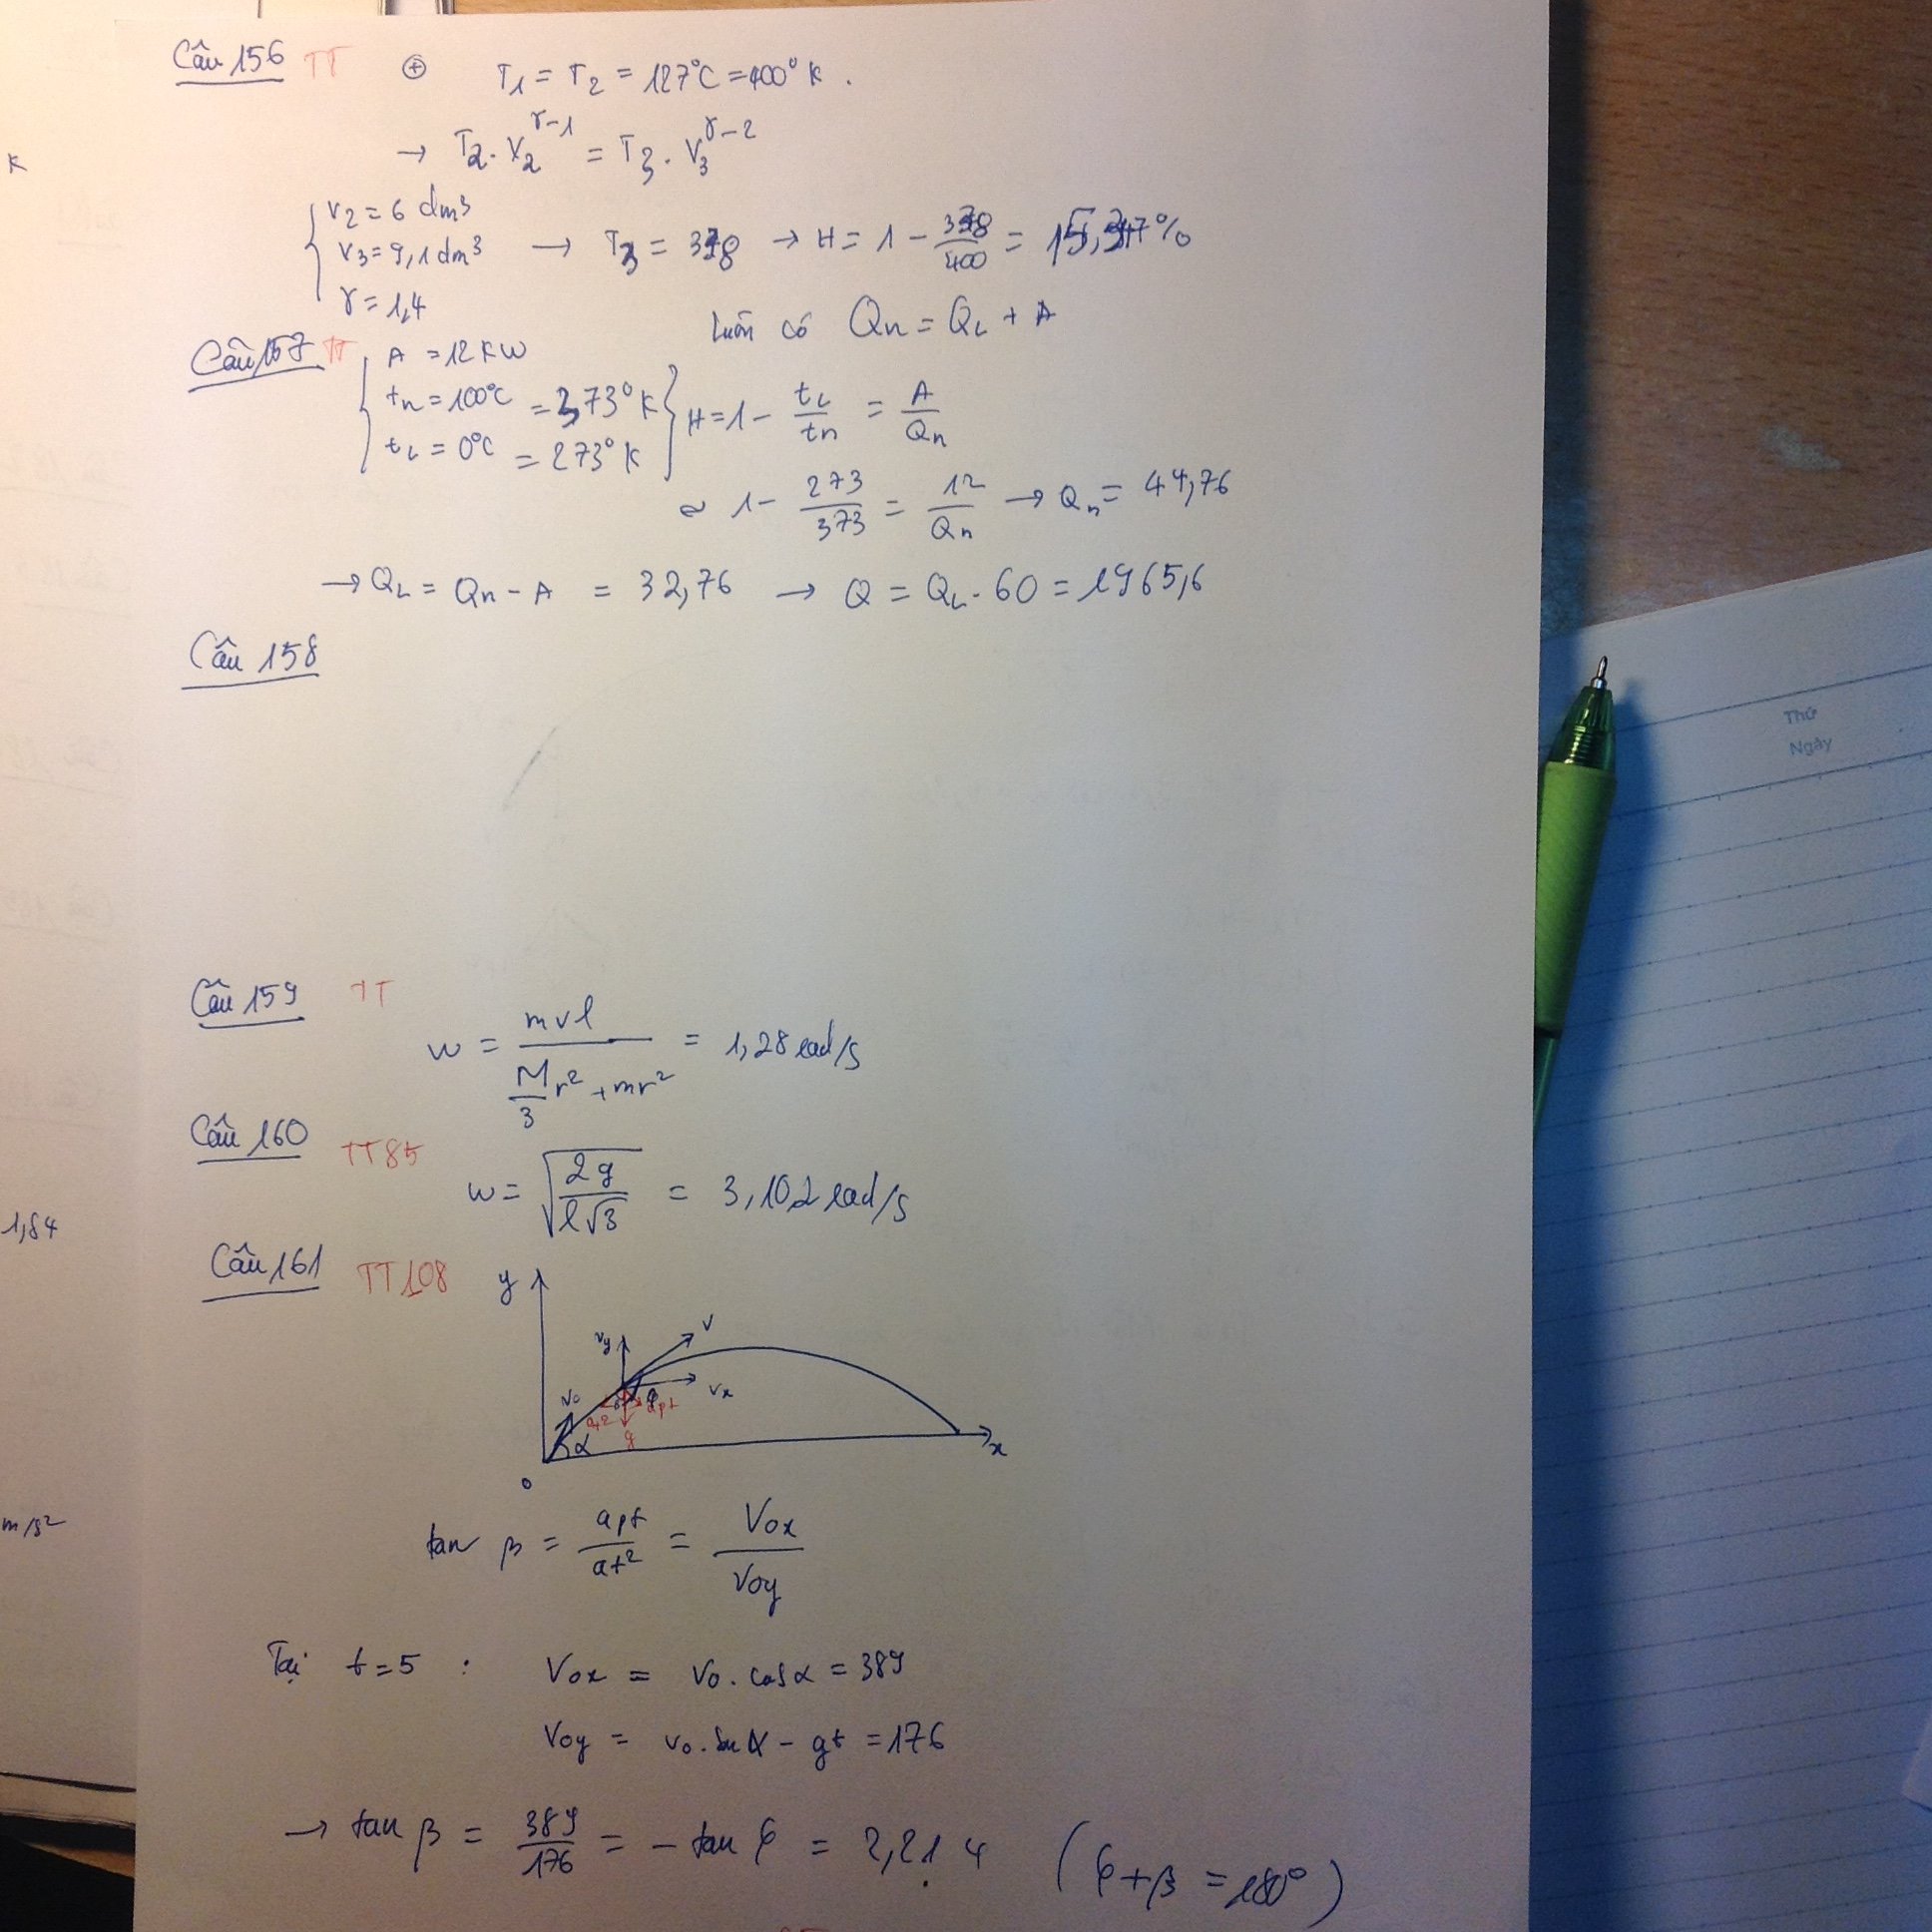 Câu 156 TT ⊕ T₁ = T₂ = 127°C = 400°K.
→ T₂.V₂^(γ-1) = T₃.V₃^(γ-2)
V₂ = 6 dm³
V₃ = 9,1 dm³ → T₃ = → H = 1 - /400 =
γ = 1,4
Luôn có Qn = QL + A
Câu 157 TT
A = 12 KW
tn = 100°C = 373°K
tL = 0°C = 273°K
H = 1 - tL/tn = A/Qn
~ 1 - 273/373 = 12/Qn → Qn = 44,76
→ QL = Qn - A = 32,76 → Q = QL.60 = 1965,6
Câu 158
Câu 159 TT
w = mvl/(M/3 r² + mr²) = 1,28 rad/s
Câu 160 TT85
w = √(2g/(l√3)) = 3,102 rad/s
Câu 161 TT108
y
v
vy
vx
v₀
apt
at²
g
α
x
o
tan β = apt/at² = Vox/Voy
Tại t=5 : Vox = v₀.cosα = 389
Voy = v₀.sinα - gt = 176
→ tan β = 389/176 = - tan φ = 2,214 (φ+β = 180°)
K
1,84
m/s²
Thứ
Ngày